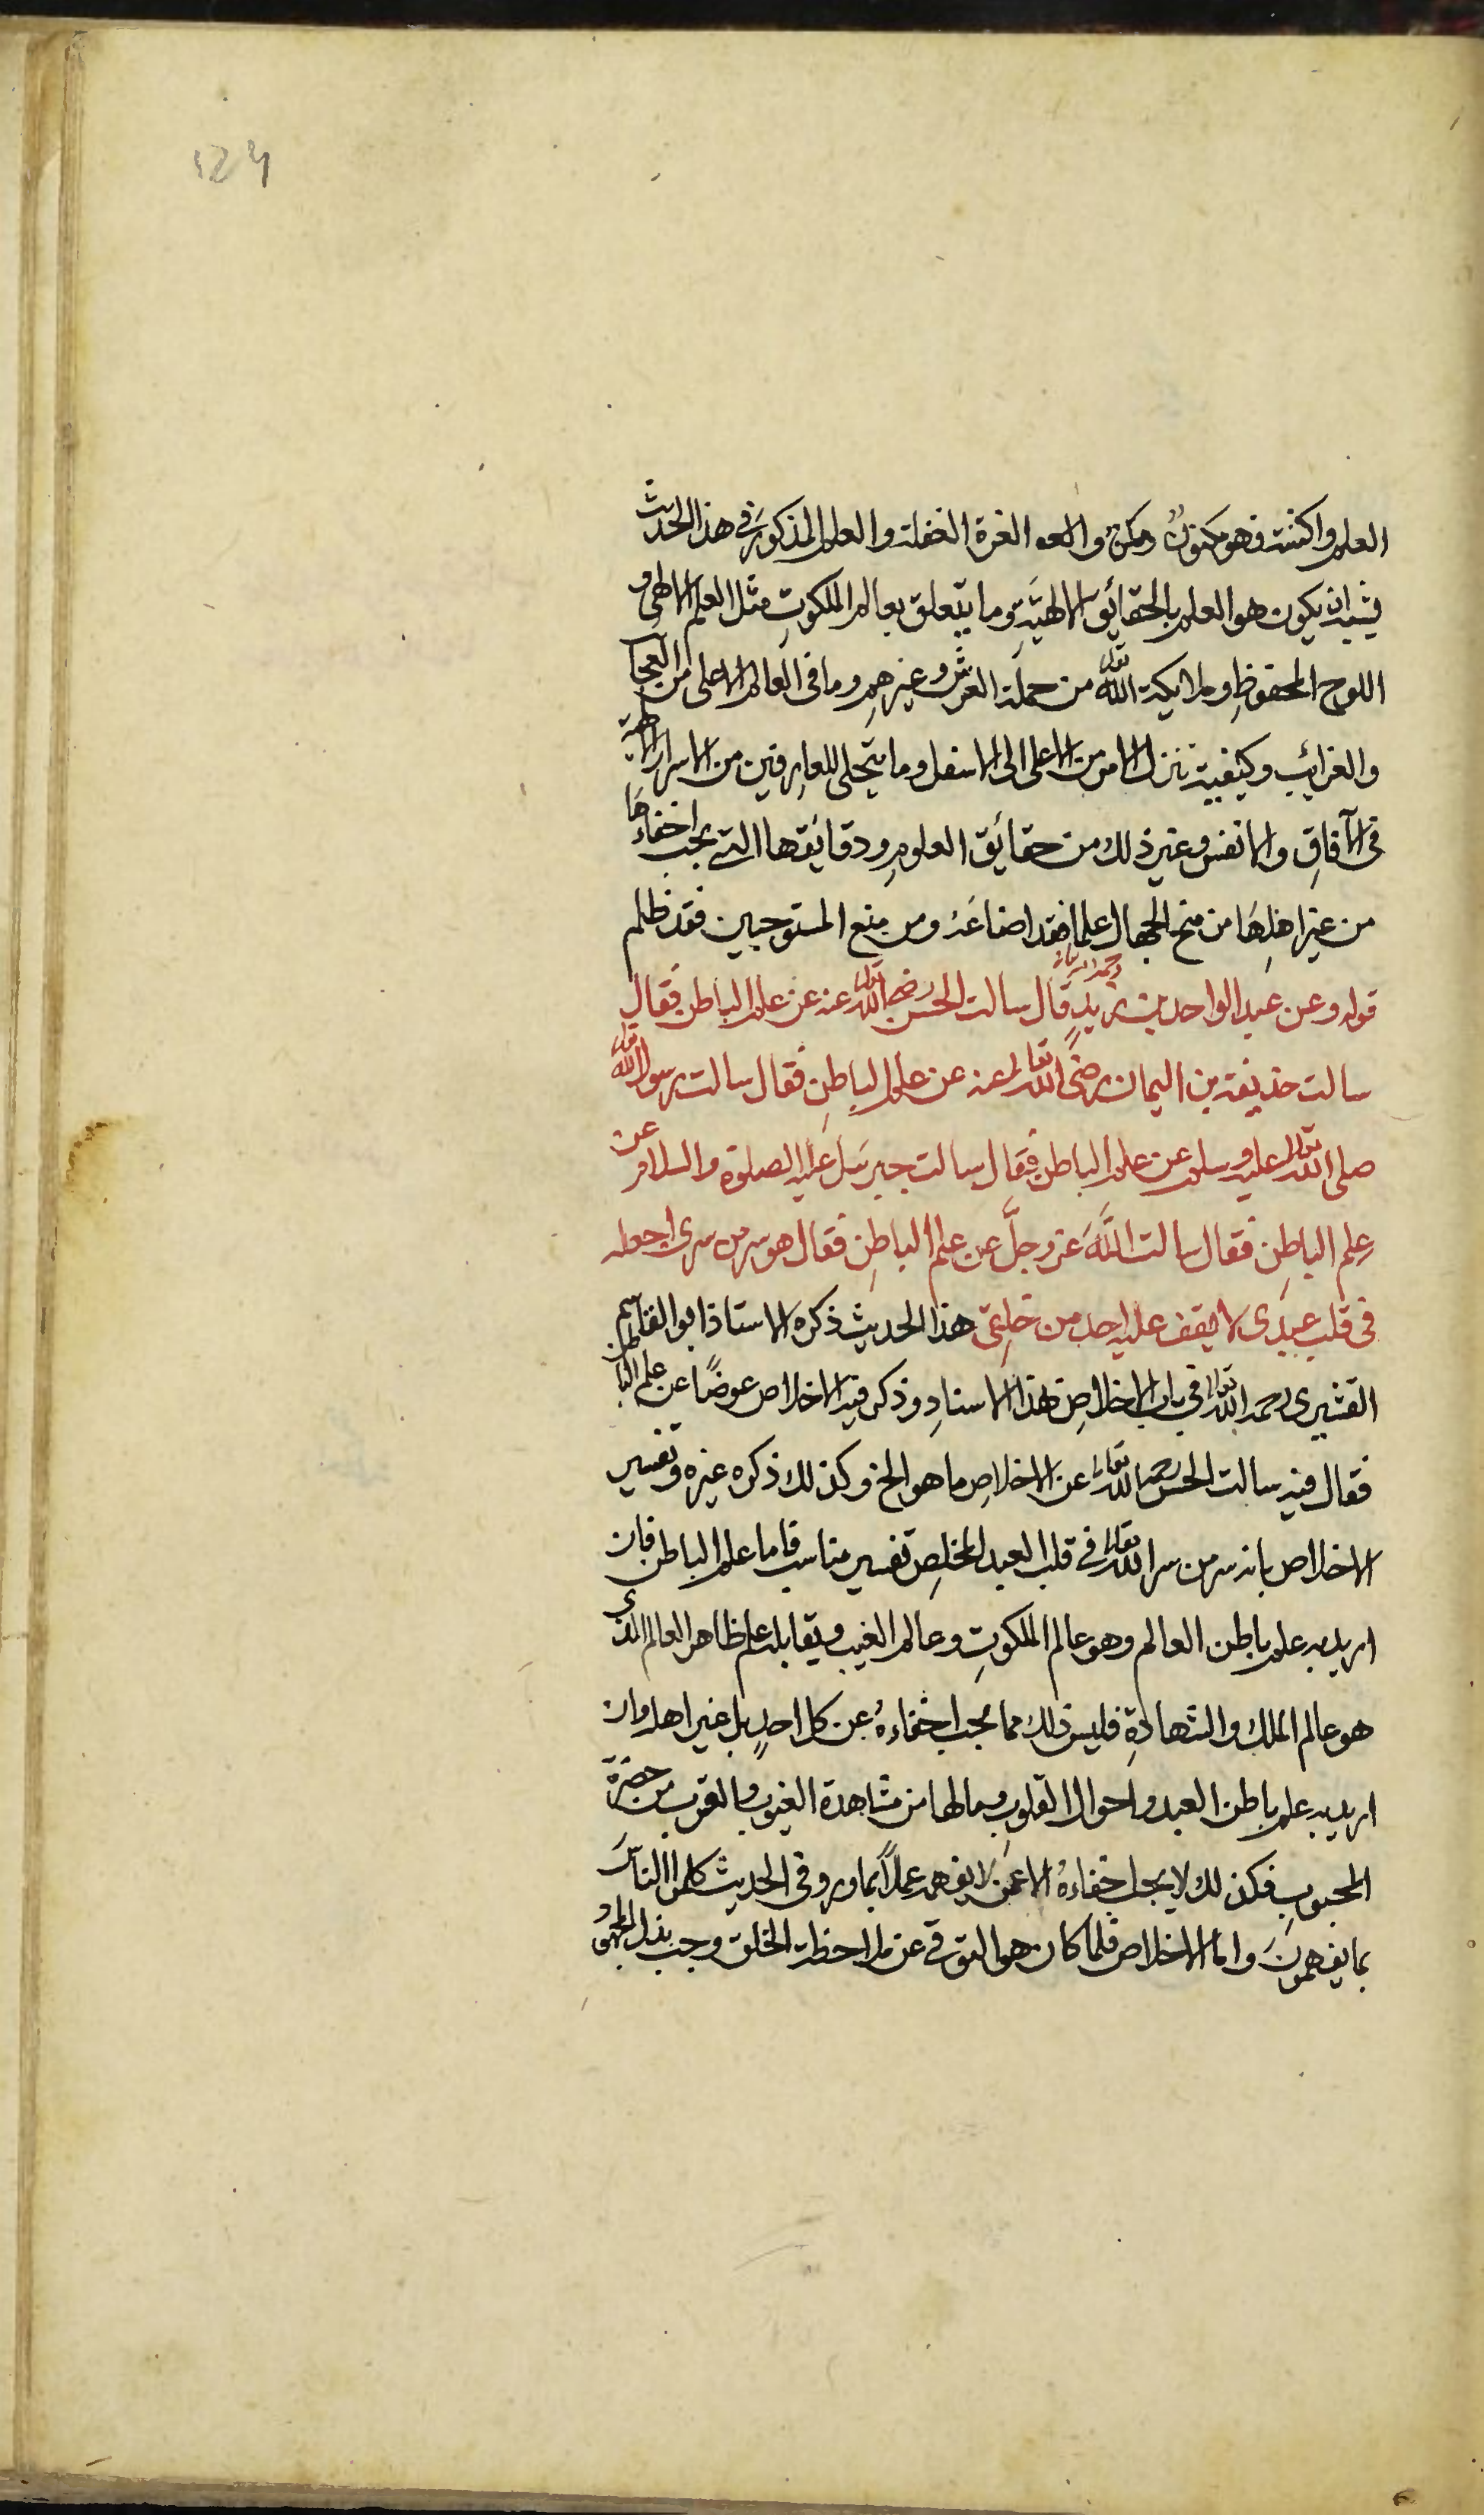 124
العلم واكننته فهو مكنون ومكن والغرة الغفلة والعلم المذكور في هذا الحديث
يشبه ان يكون هو العلم بالحقائق الالهية وما يتعلق بعالم الملكوت مثل العلم الالهى و
اللوح المحفوظ وملايكة الله تعالى من حملة العرش وغيرهم وما فى العالم الاعلى من العجا
والغرائب وكيفية تنزل الامر من الاعلى الى الاسفل وما يتجلى للعارفين من الاسرار الالهية
فى الآفاق والانفس وغير ذلك من حقائق العلوم ودقائقها التى يجب اخفاءها
من غير اهلها من منح الجهال علما فقد اضاعه ومن منع المستوجبين فقد ظلم
قوله وعن عبد الواحد بن زيد رحمه الله تعالى قال سالت الحسن رضى الله تعالى عنه عن علم الباطن فقال
سالت حذيفة بن اليمان رضى الله تعالى عنه عن علم الباطن فقال سالت رسول الله
صلى الله تعالى عليه وسلم عن علم الباطن فقال سالت جبرئيل عليه الصلوة والسلام عن
علم الباطن فقال سالت الله عز وجل عن علم الباطن فقال هو سر من سرى اجعله
فى قلب عبدى لا يقف عليه احد من خلقى هذا الحديث ذكره الاستاذ ابو القاسم
القشيرى رحمه الله تعالى فى باب الاخلاص بهذا الاسناد وذكر فيه الاخلاص عوضا عن علم الباطن
فقال فيه سالت الحسن رحمه الله تعالى عن الاخلاص ما هو الخ وكذلك ذكره غيره وتفسير
الاخلاص بانه سر من سر الله تعالى فى قلب العبد المخلص تفسير مناسب فاما علم الباطن فان
اريد به علم باطن العالم وهو عالم الملكوت وعالم الغيب ويقابله علم ظاهر العالم الذى
هو عالم الملك والشهادة فليس ذلك مما يجب اخفاءه عن كل احد بل غير اهله وان
اريد به علم باطن العبد واحوال القلوب وما لها من مشاهدة الغيوب والقرب من حضرة
المحبوب فكذلك لا يجب اخفاءه الا عمن لا يفهمه عملا بما ورد فى الحديث كلموا الناس
بما يفهمون واما الاخلاص فلما كان هو التوقى عن ملاحظة الخلق وجب بذل المجهود